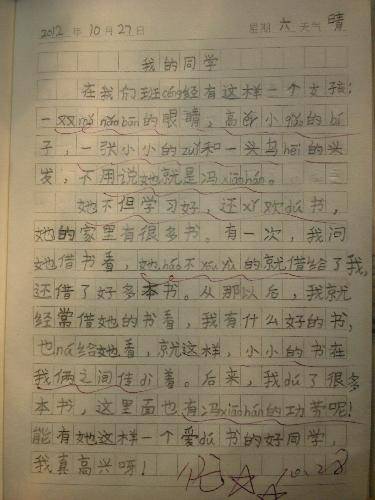 2012 年 10 月 27 日 星期 六 天气 晴
我的同学
在我们班céng经有这样一个女孩:
一双míngliàng的眼睛,高高小小的bí
子,一张小小的zuǐ和一头乌hēi的头
发,不用说她就是冯xiāohán。
她不但学习好,还xǐ欢dú书,
她的家里有很多书。有一次,我问
她借书看,她háo不yóuyù的就借给了我,
还借了好多本书。从那以后,我就
经常借她的书看,我有什么好的书,
也ná给她看,就这样,小小的书在
我俩之间传dì着。后来,我dú了很多
本书,这里面也有冯xiāohán的功劳呢!
能有她这样一个爱dú书的好同学,
我真高兴呀!
优 10.28